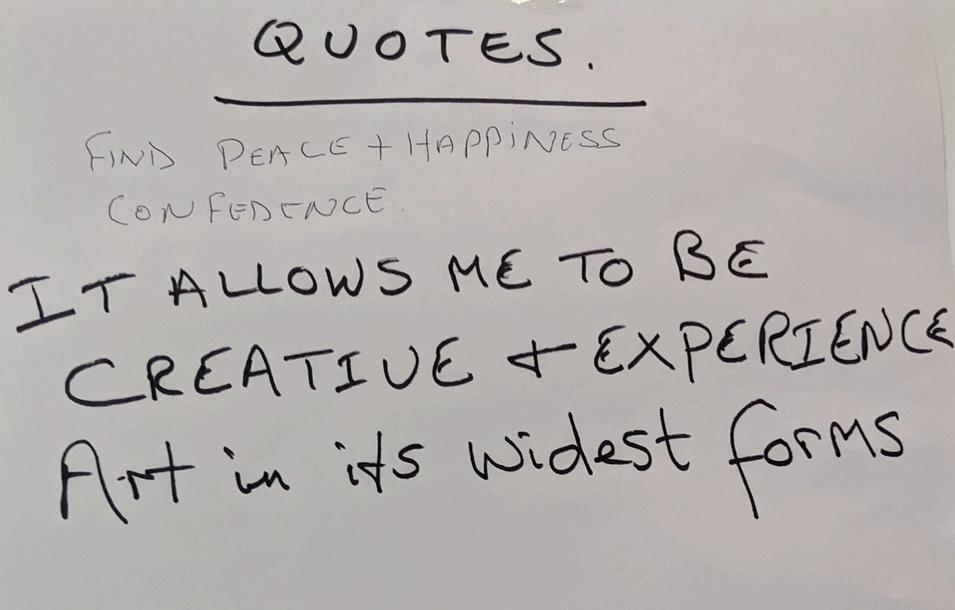 QUOTES.
FIND PEACE + HAPPINESS
CONFEDENCE.
IT ALLOWS ME TO BE
CREATIVE + EXPERIENCE
Art in its widest forms